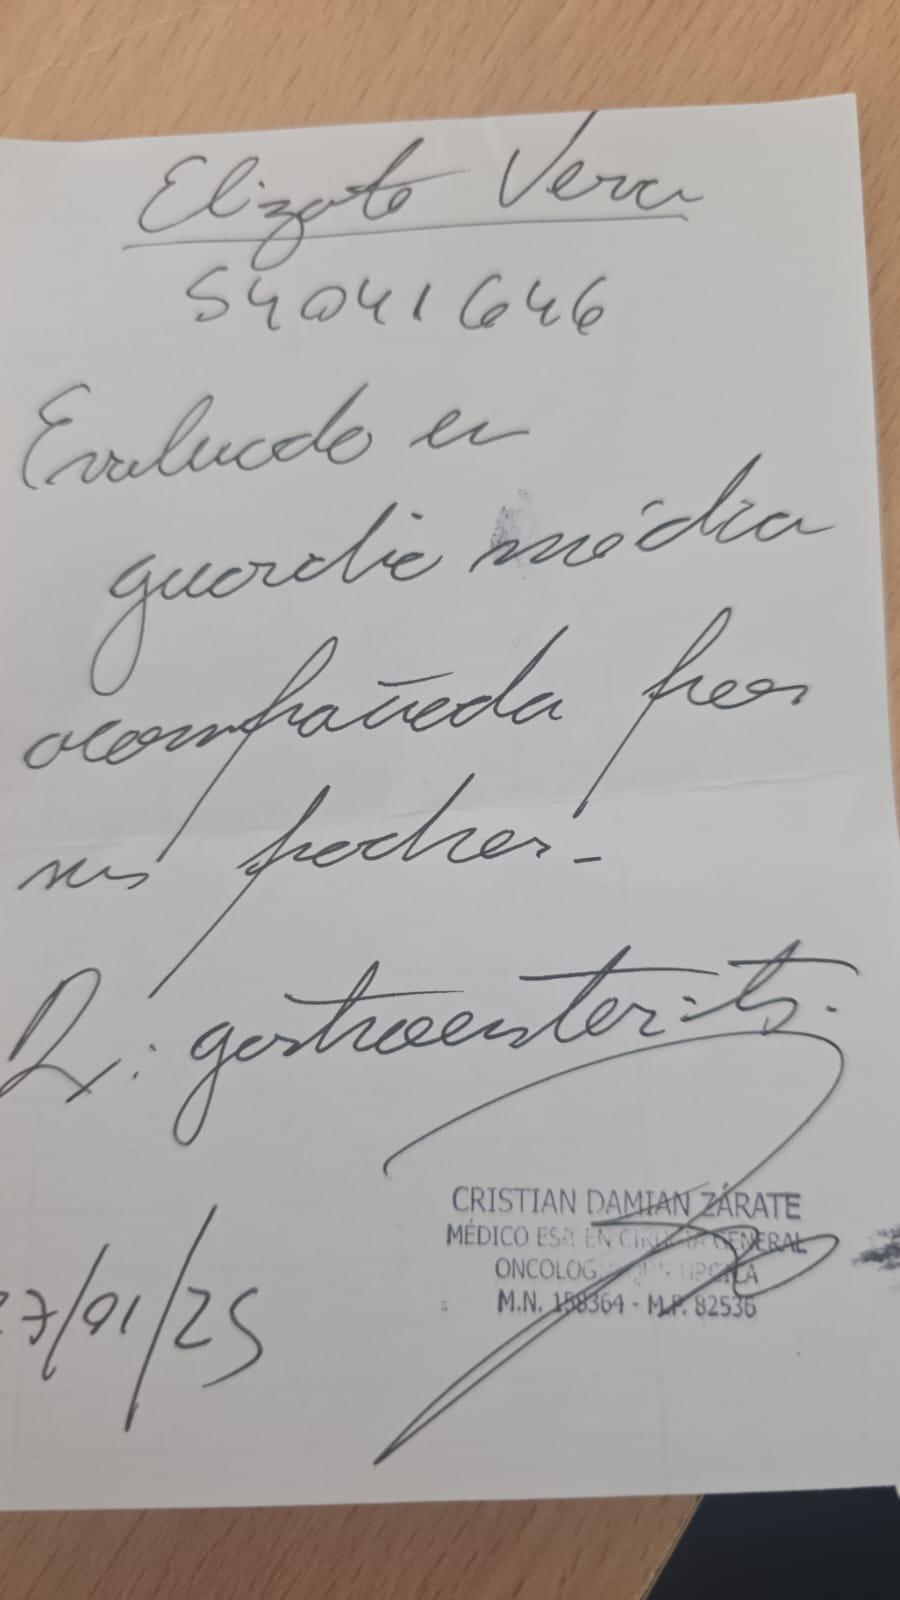 Elizate Vera
54041646
Evaluado en
guardia médica
acompañada por
sus padres -
Dx: gastroenteritis.
CRISTIAN DAMIAN ZÁRATE
MÉDICO ESP. EN CIRUGIA GENERAL
ONCOLOGIA QUIRURGICA
M.N. 158364 - M.P. 82536
27/01/25